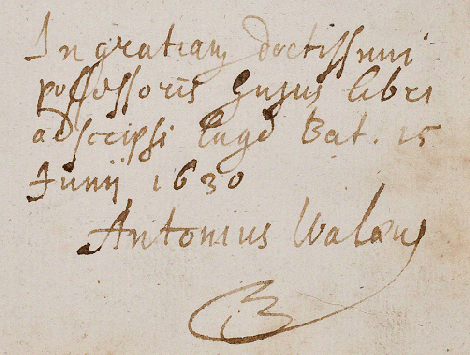 In gratiam doctissimi
possessoris hujus libri
adscripsi Lugd Bat. 15
Junij 1630
Antonius Walæus